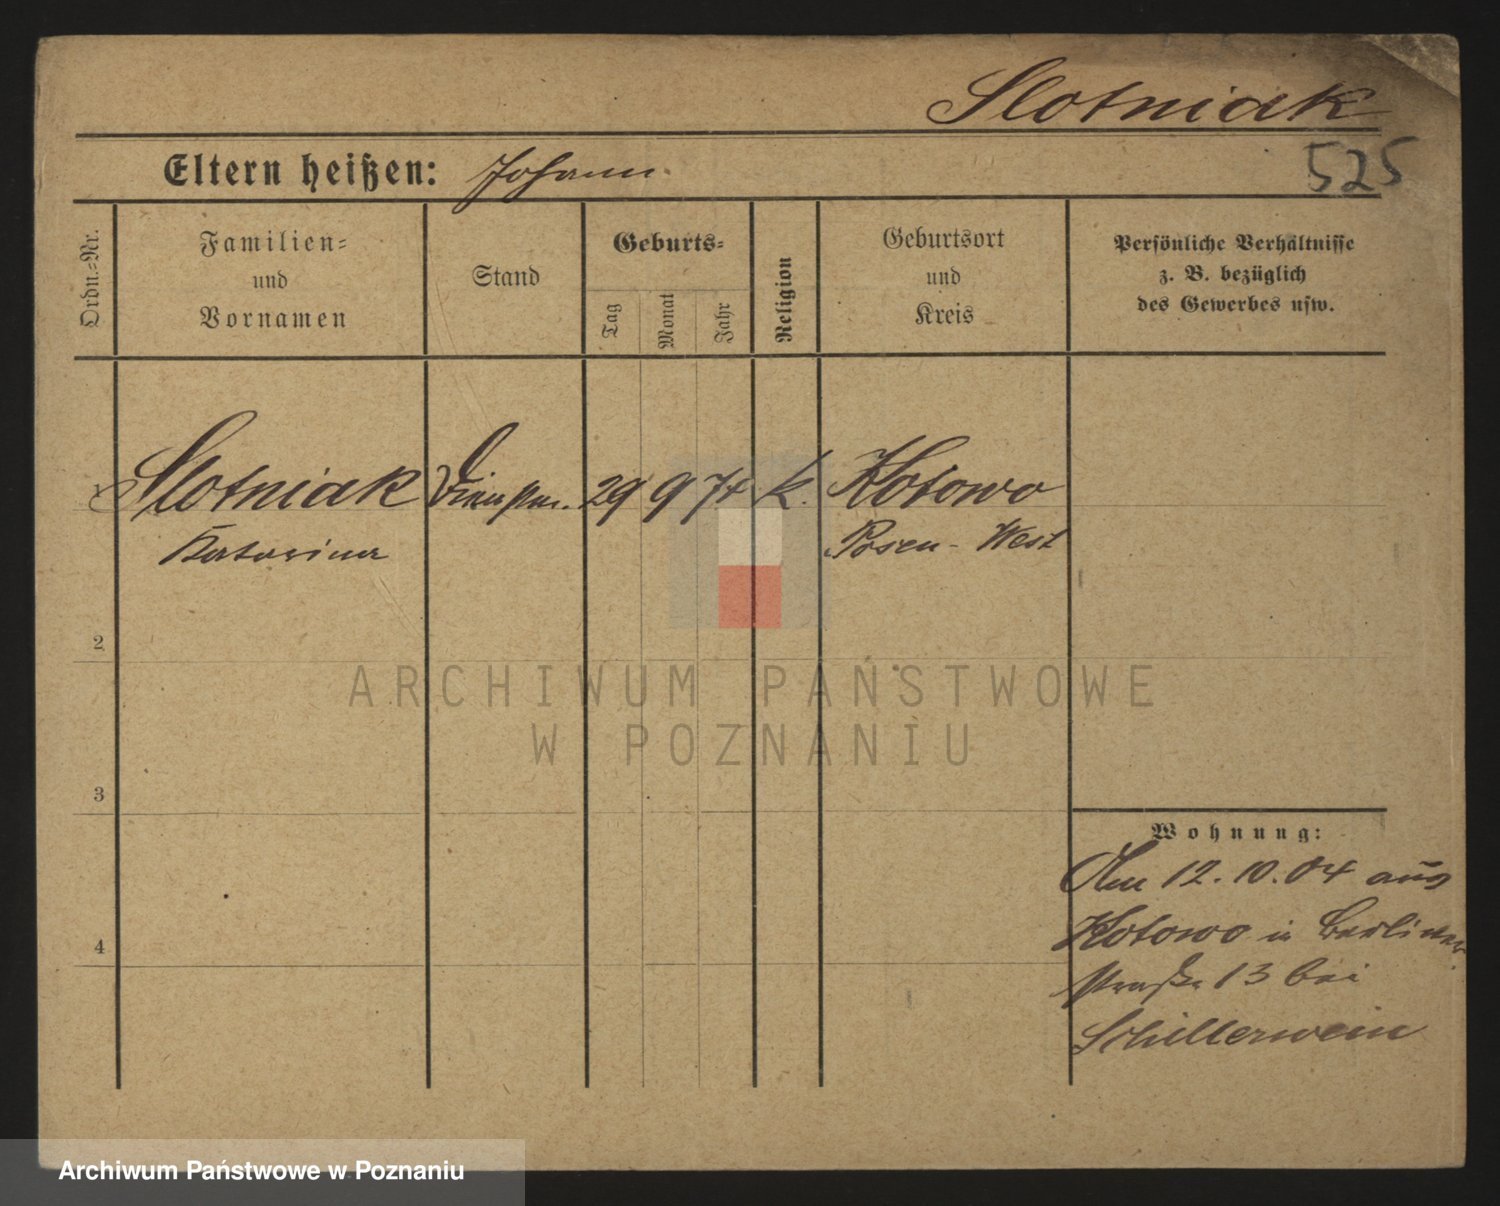 Slotniak
525
Eltern heißen: Johann
Ordn.=Nr.
Familien=
und
Vornamen
Stand
Geburts=
Tag
Monat
Jahr
Religion
Geburtsort
und
Kreis
Persönliche Verhältnisse
z. B. bezüglich
des Gewerbes usw.
1 Slotniak 29 9 74 k. Kotowo
Katarina Posen - West
2
3
4
ARCHIWUM PAŃSTWOWE
W POZNANIU
Wohnung:
Am 12.10.04 aus
Kotowo in Berliner
straße 13 bei
Schillerwein
Archiwum Państwowe w Poznaniu